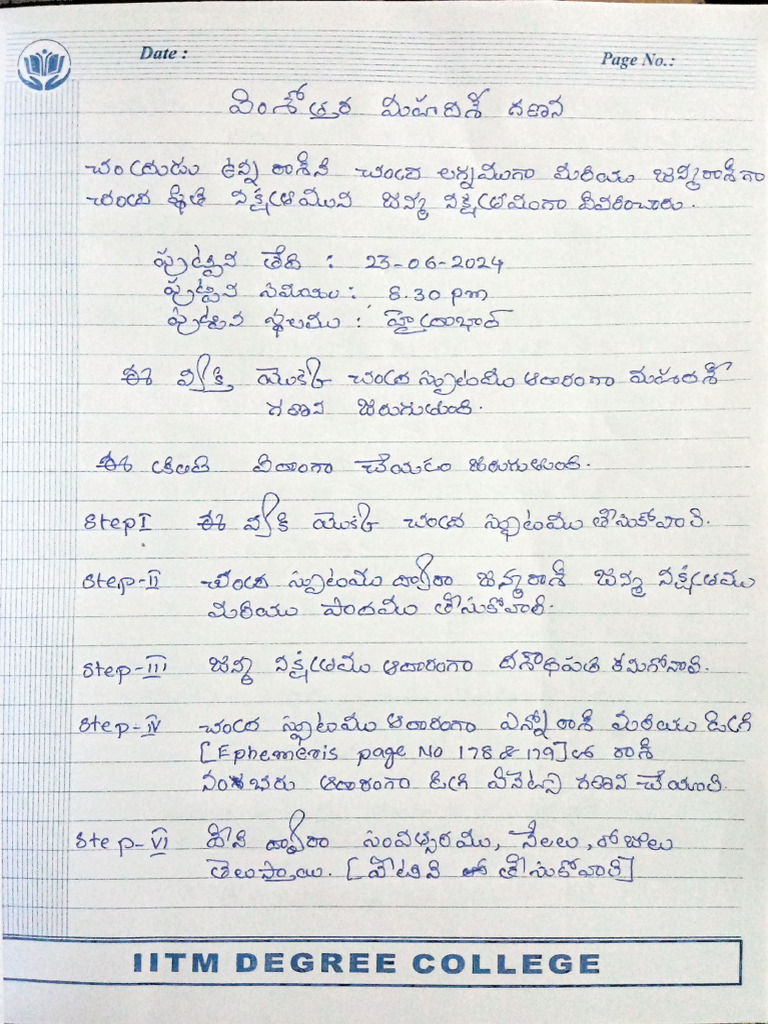 Date :
Page No.:
వింశోత్తర మహాదశ గణన
చంద్రుడు ఉన్న రాశిని చంద్ర లగ్నముగా మరియు జన్మరాశిగా
చంద్ర స్థితి నక్షత్రమును జన్మ నక్షత్రముగా వివరించారు.
పుట్టిన తేది : 23-06-2024
పుట్టిన సమయం : 8.30 pm
పుట్టిన స్థలము : హైద్రాబాద్
ఈ వ్యక్తి యొక్క చంద్ర స్ఫుటము ఆదారంగా మహాదశ
గణన జరుగుతుంది.
ఈ క్రింది విదంగా చేయడం జరుగుతుంది.
Step I ఈ వ్యక్తి యొక్క చంద్ర స్ఫుటము తీసుకోవాలి.
Step-II చంద్ర స్ఫుటము ద్వారా జన్మరాశి జన్మ నక్షత్రము
మరియు పాదము తీసుకోవాలి.
Step-III జన్మ నక్షత్రము ఆదారంగా దశాధిపతి కనుగోనాలి.
Step-IV చంద్ర స్ఫుటము ఆదారంగా ఎన్నో రాశి మరియు డిగ్రీ
[Ephemeris page No 178 & 179] లో రాశి
నంబరు ఆదారంగా డిగ్రీ మినిట్స్ గణన చేయాలి.
Step-VI దీని ద్వారా సంవత్సరము, నేలలు, రోజులు
తెలుస్తాయి. [వాటిని తీసుకోవాలి]
IITM DEGREE COLLEGE